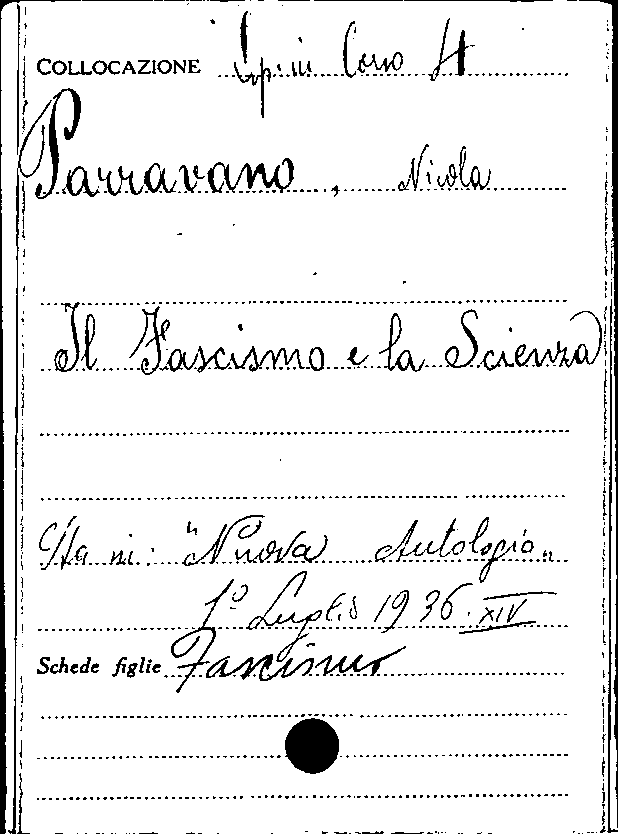 COLLOCAZIONE Corso H
Parravano, Nicola
Il Fascismo e la Scienza
Sta in: "Nuova Antologia"
1º Luglio 1936. XIV
Schede figlie Fascismo